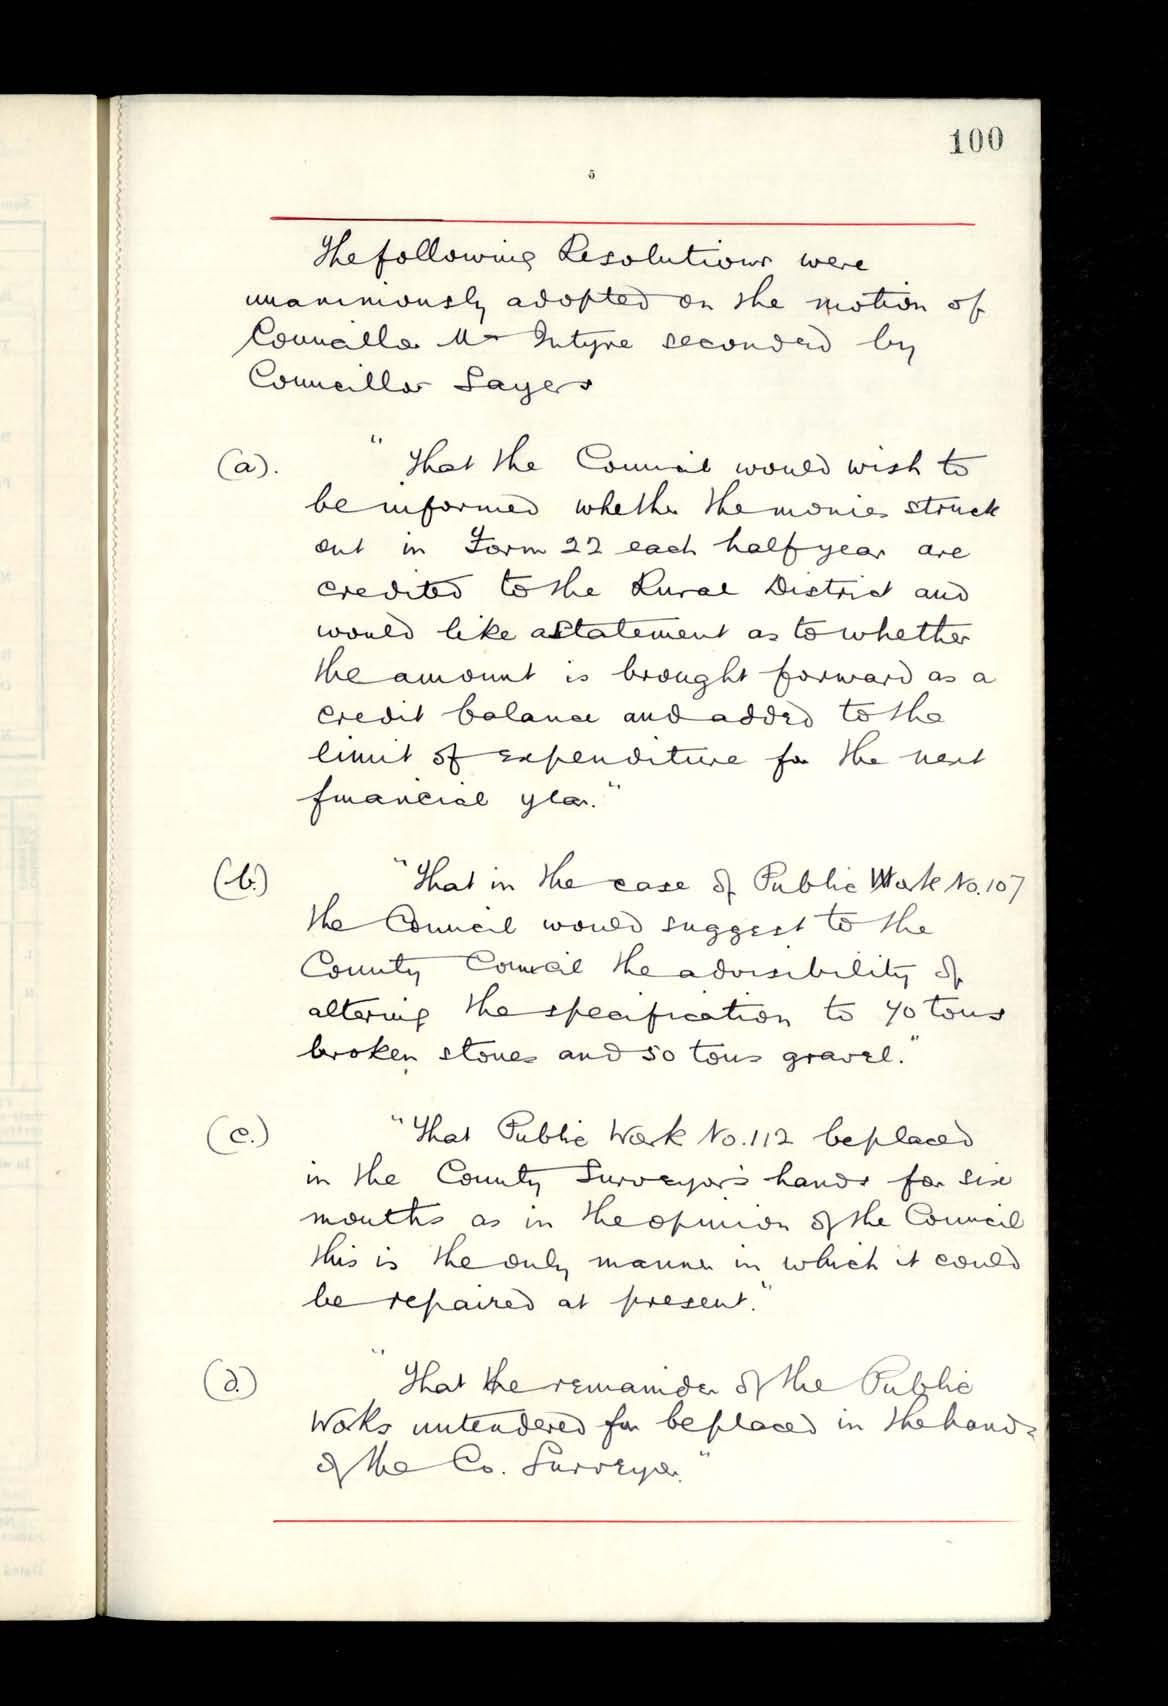 100
5
The following Resolutions were
unanimously adopted on the motion of
Councillor Mc Intyre seconded by
Councillor Sayers
(a). "That the Council would wish to
be informed whether the monies struck
out in Form 22 each half year are
credited to the Rural District and
would like a Statement as to whether
the amount is brought forward as a
credit balance and added to the
limit of expenditure for the next
financial year."
(b.) "That in the case of Public Work No. 107
the Council would suggest to the
County Council the advisibility of
altering the specification to 40 tons
broken stones and 50 tons gravel."
(c.) "That Public Work No. 112 be placed
in the County Surveyor's hands for six
months as in the opinion of the Council
this is the only manner in which it could
be repaired at present."
(d.) "That the remainder of the Public
Works untendered for be placed in the hands
of the Co. Surveyor."